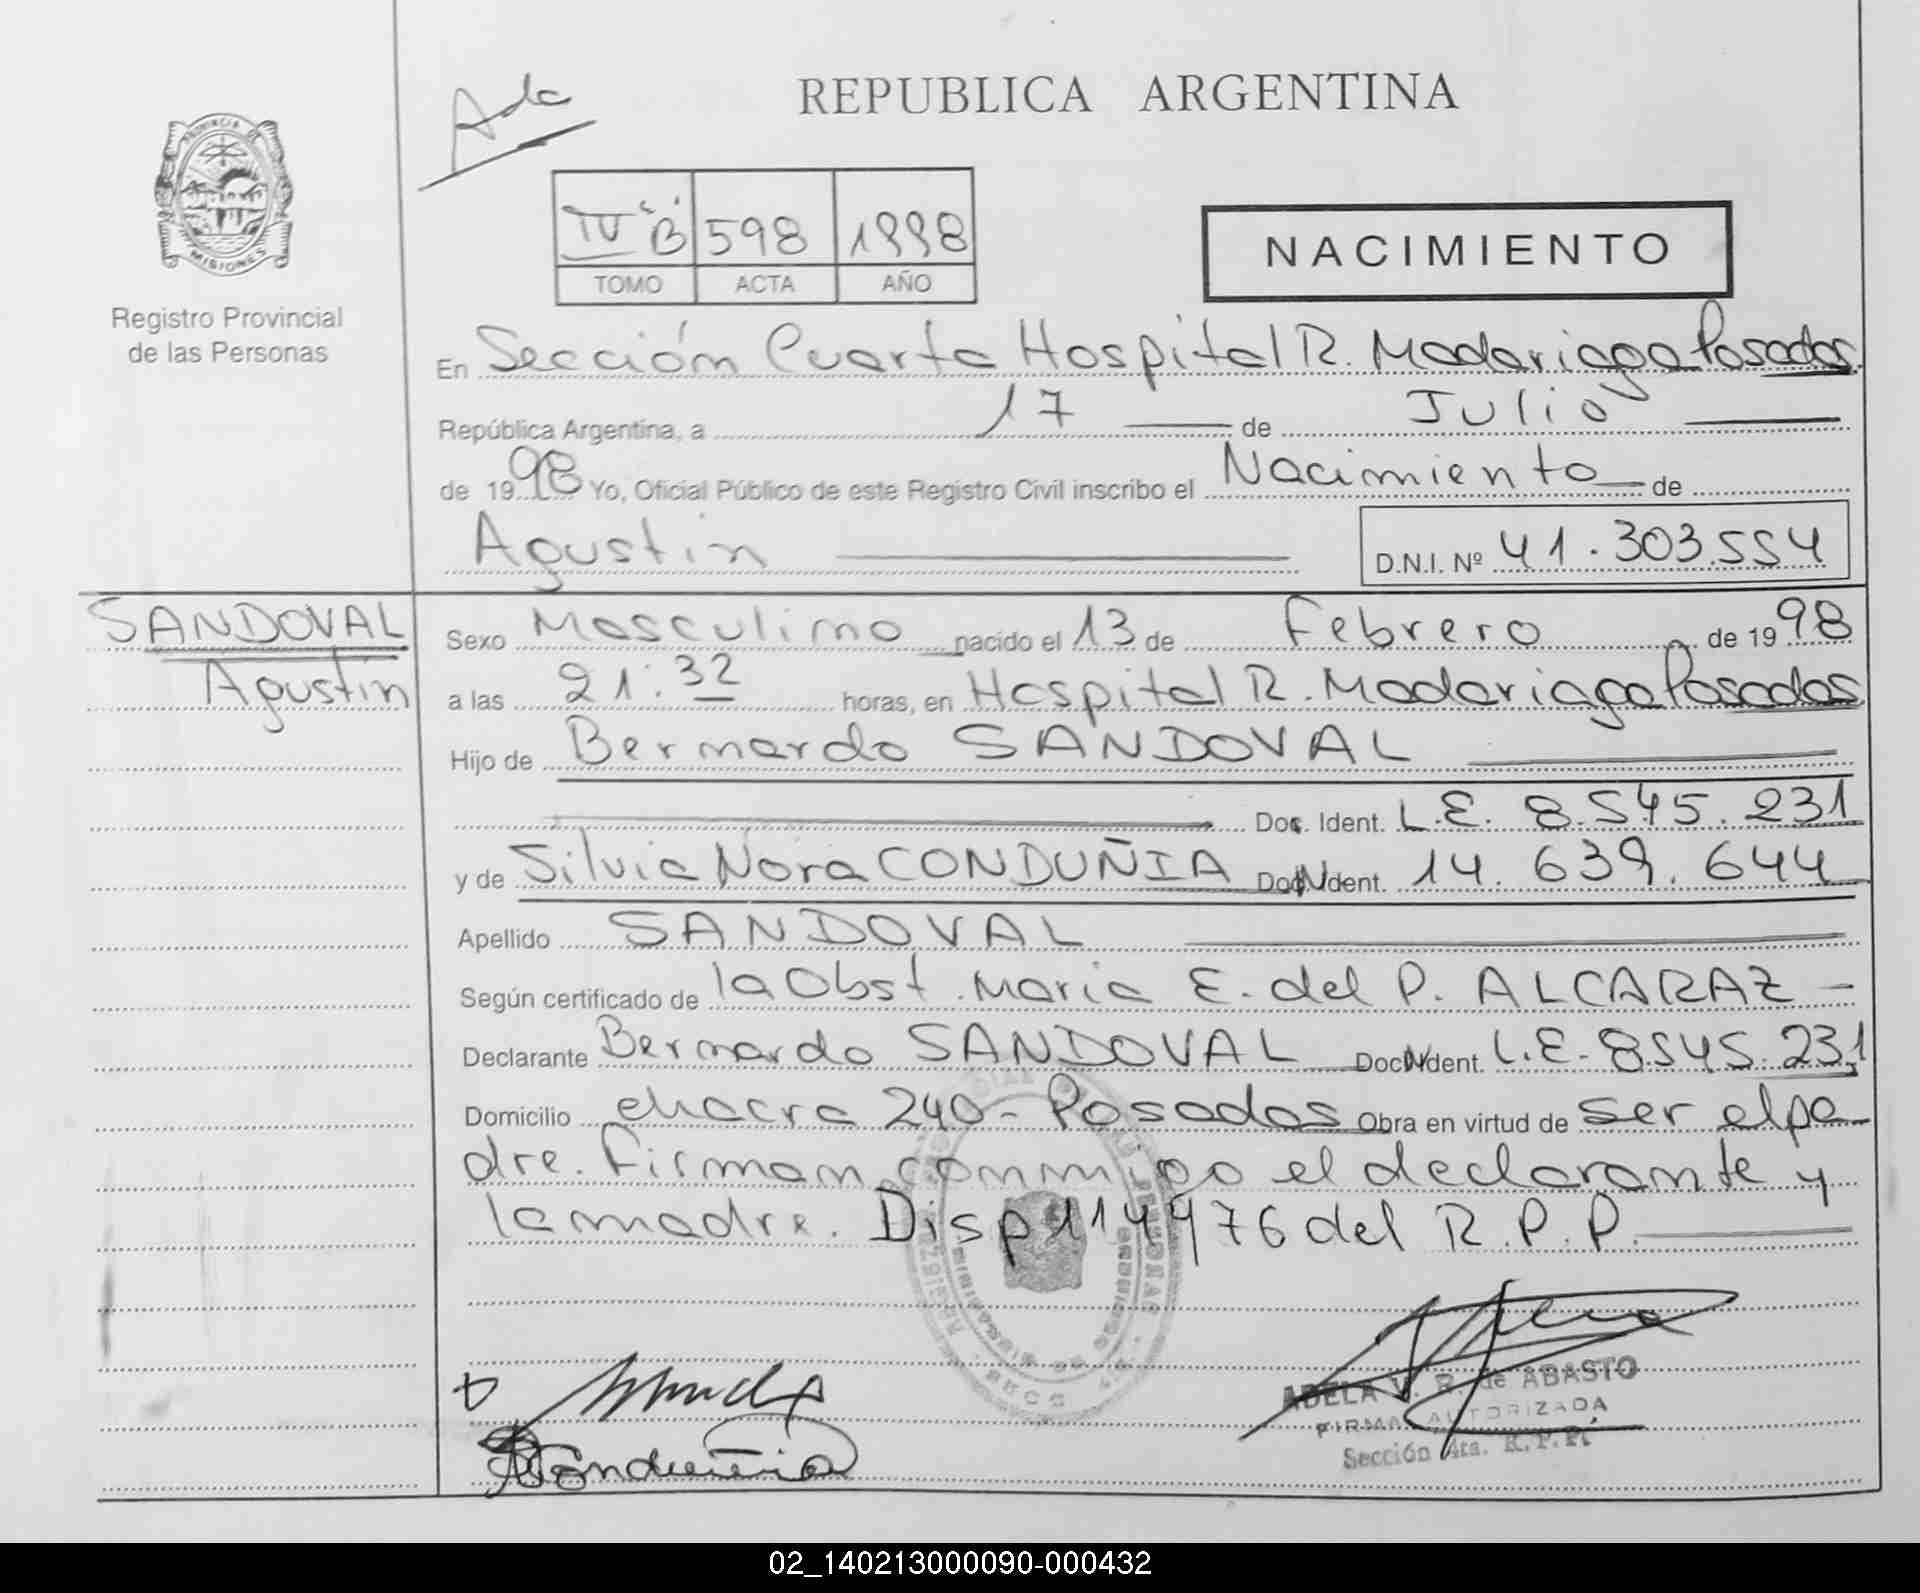 Ada
REPUBLICA ARGENTINA
PROVINCIA DE
MISIONES
Registro Provincial
de las Personas
IV "B" 598 1998
TOMO ACTA AÑO
NACIMIENTO
En Sección Cuarta Hospital R. Madariaga Posadas
República Argentina, a 17 de Julio
de 1998 Yo, Oficial Público de este Registro Civil inscribo el Nacimiento de
Agustin D.N.I. Nº 41.303.554
SANDOVAL
Agustin
Sexo Masculino nacido el 13 de Febrero de 1998
a las 21:32 horas, en Hospital R. Madariaga Posadas
Hijo de Bernardo SANDOVAL
Doc. Ident. L.E. 8.545.231
y de Silvia Nora CONDUÑIA Doc. Ident. 14.639.644
Apellido SANDOVAL
Según certificado de la Obst. Maria E. del P. ALCARAZ -
Declarante Bernardo SANDOVAL Doc. Ident. L.E. 8.545.231
Domicilio chacra 240 - Posadas Obra en virtud de ser el pa
dre. Firman conmigo el declarante y
la madre. Disp 114976 del R.P.P.
ADELA V. R. de ABASTO
FIRMA AUTORIZADA
Sección 4ta. R.P.P.
02_140213000090-000432